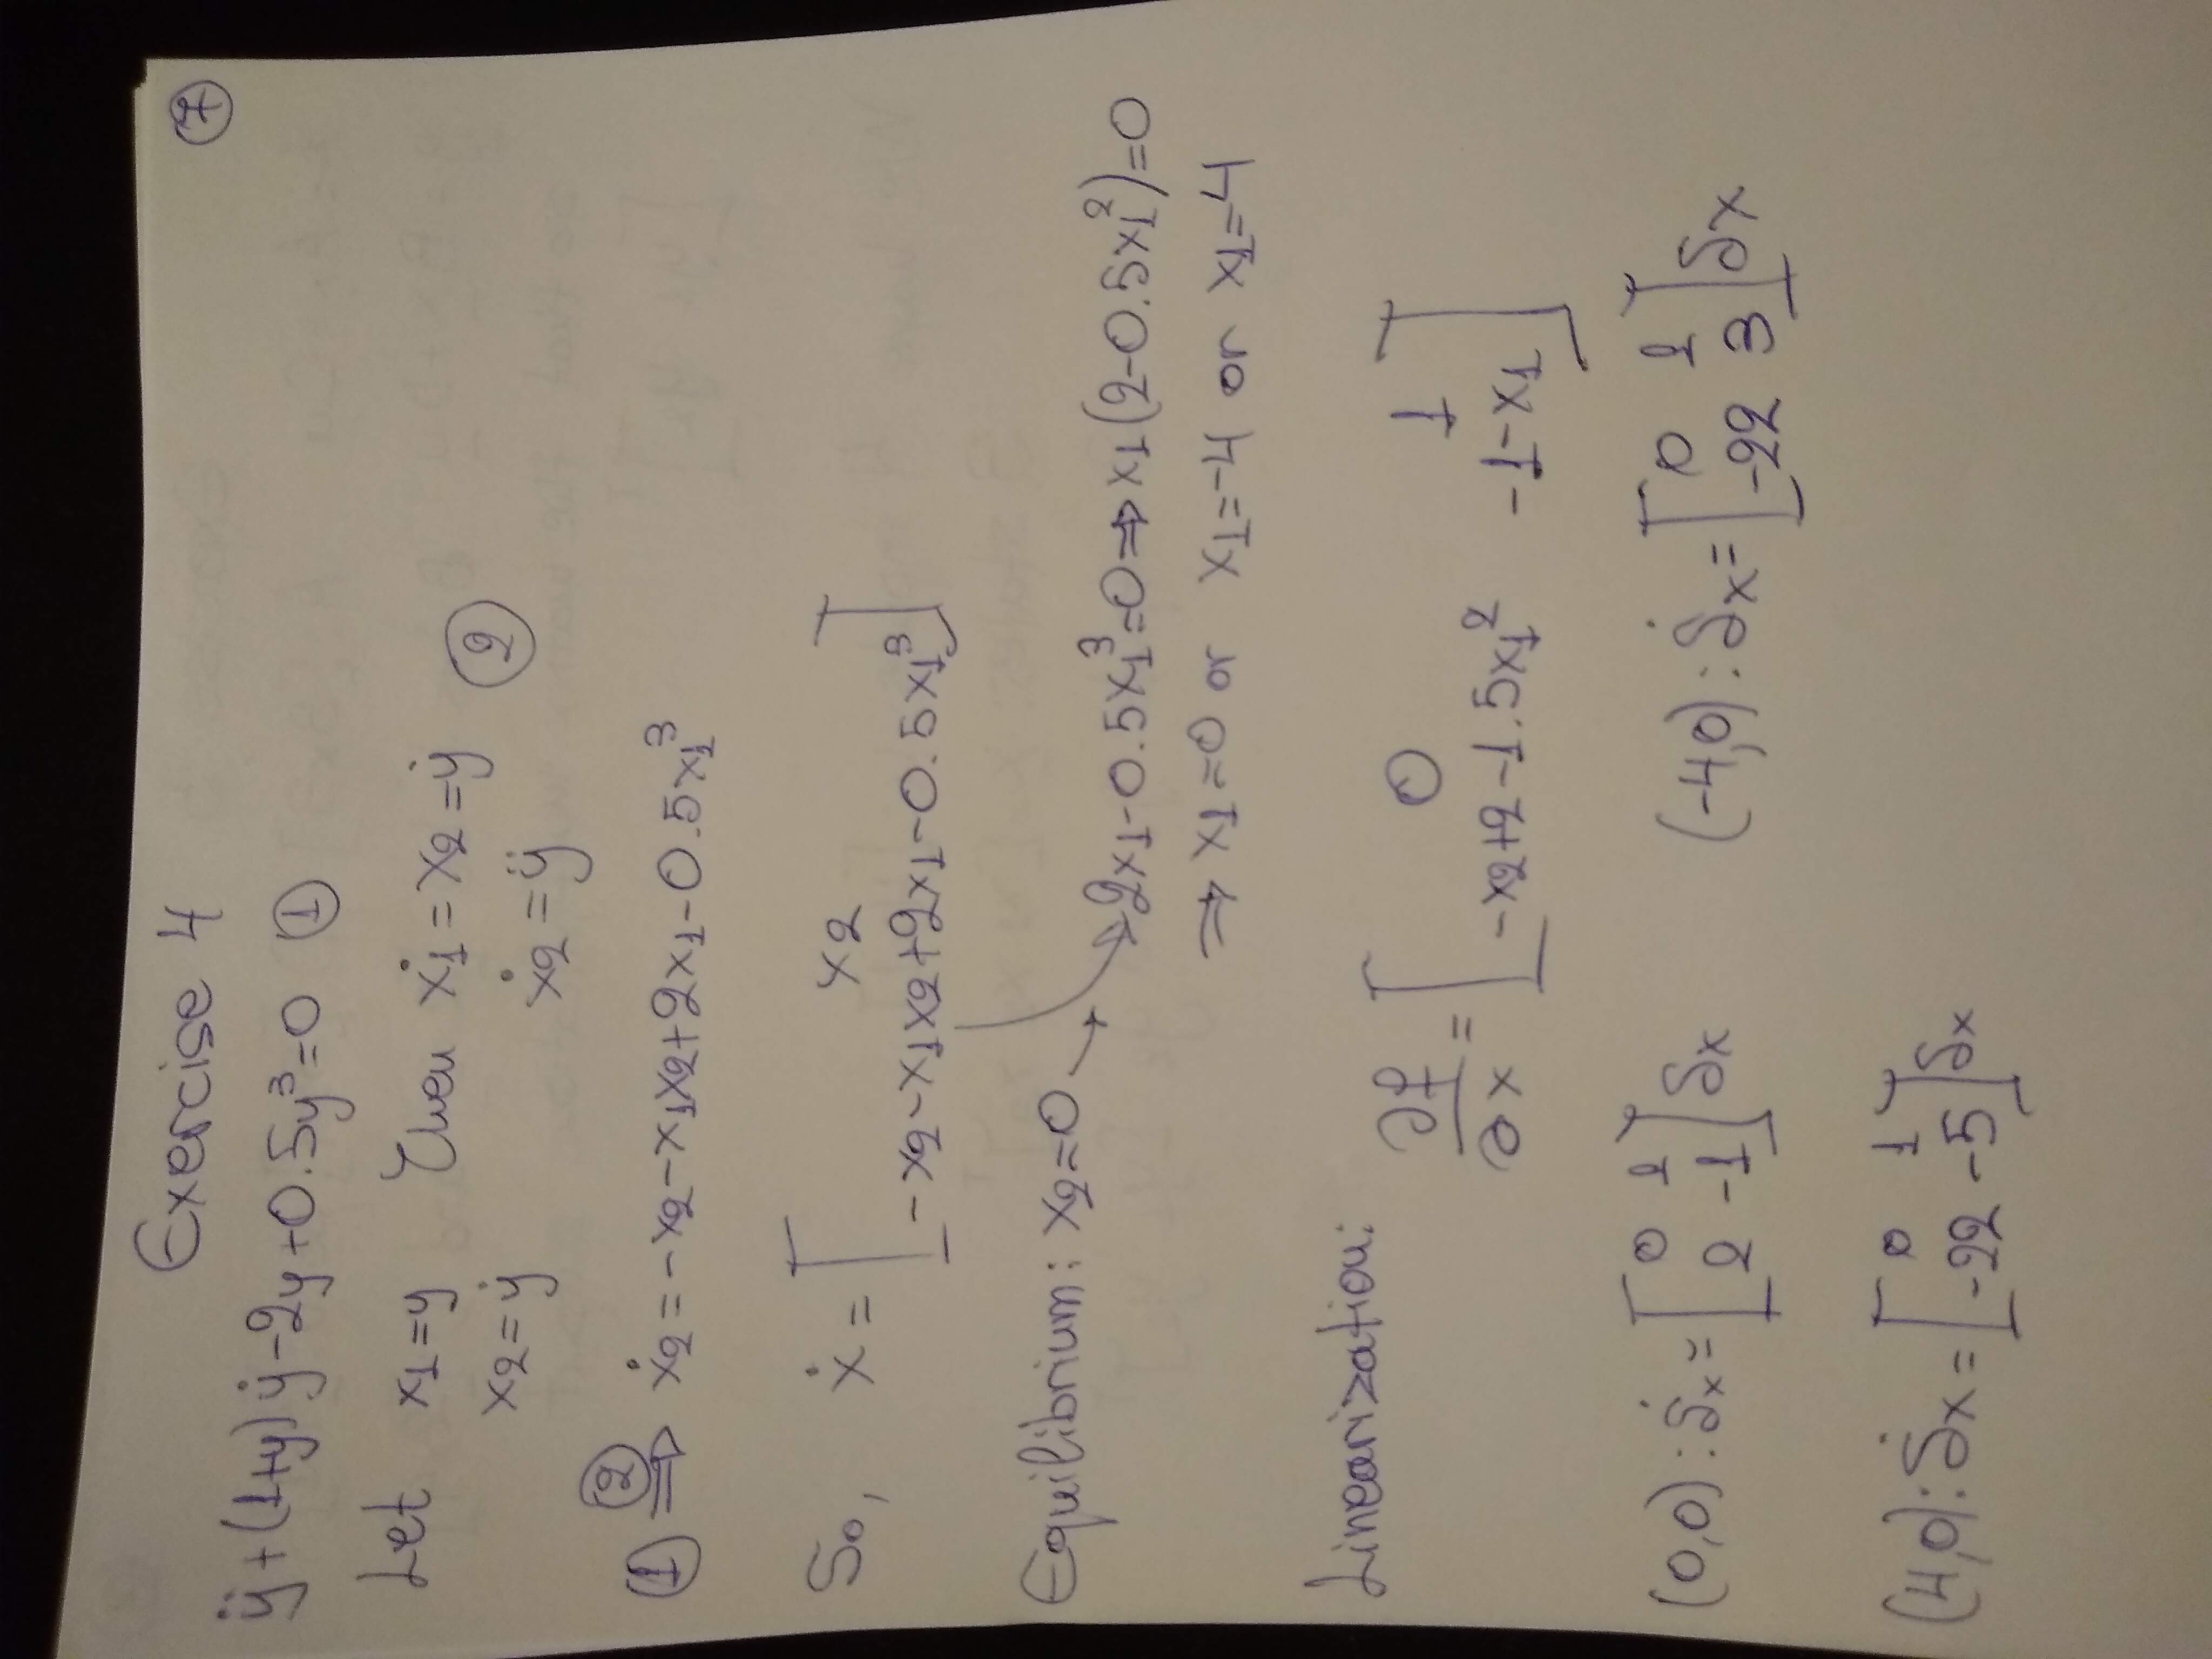 7
Exercise 4
ÿ+(1+y)ẏ-2y+0.5y³=0 ①
Let x₁=y Then ẋ₁=x₂=ẏ
x₂=ẏ ẋ₂=ÿ ②
① ②⟹ ẋ₂=-x₂-x₁x₂+2x₁-0.5x₁³
So, ẋ = [ x₂
-x₂-x₁x₂+2x₁-0.5x₁³ ]
Equilibrium: x₂=0 → 2x₁-0.5x₁³=0 ⇔ x₁(2-0.5x₁²)=0
⇔ x₁=0 or x₁=-4 or x₁=4
Linearization: ∂f/∂x = [ 0 1
-x₂+2-1.5x₁² -1-x₁ ]
(0,0): δẋ = [ 0 1
2 -1 ] δx
(-4,0): δẋ = [ 0 1
-22 3 ] δx
(4,0): δẋ = [ 0 1
-22 -5 ] δx